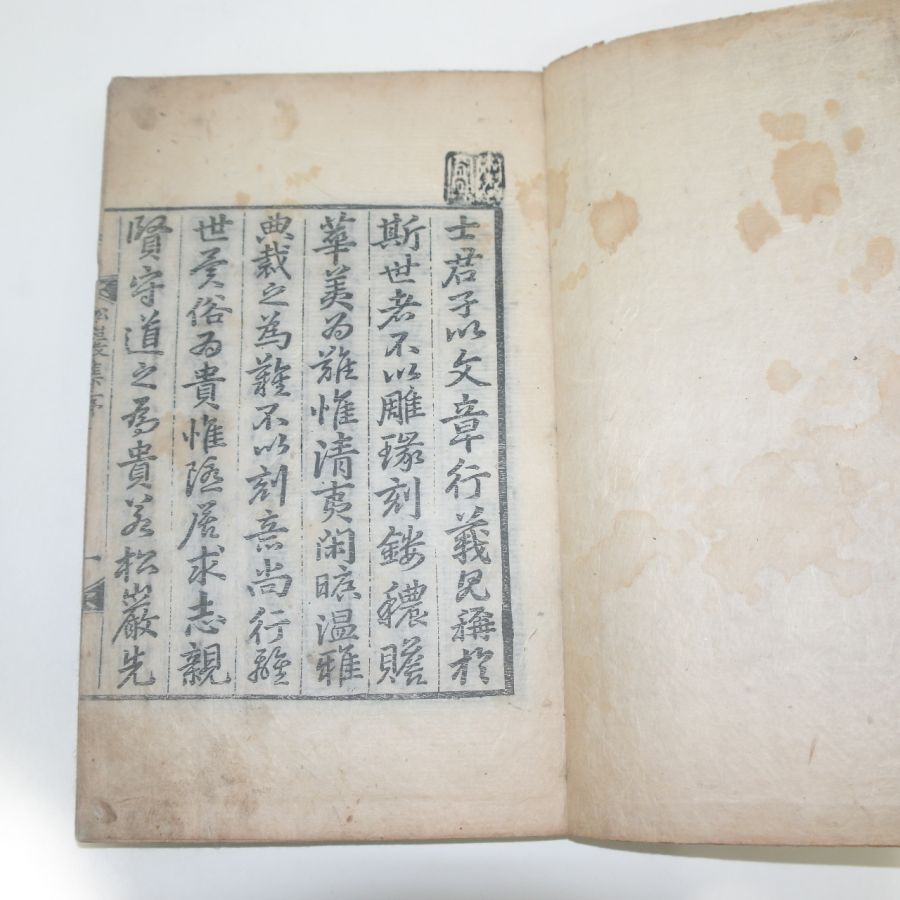 士君子以文章行義見稱於
斯世者不以雕瑑刻鏤穠贍
華美為難惟清夷閑曠温雅
典裁之為難不以刻意尚行離
世異俗為貴惟隱居求志親
賢守道之為貴若松巖先
松巖集序
一